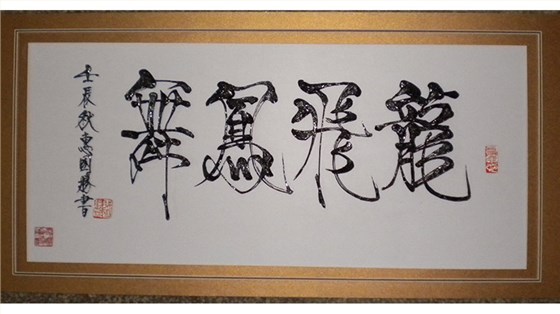 龍飛鳳舞
壬辰秋惠國勝書